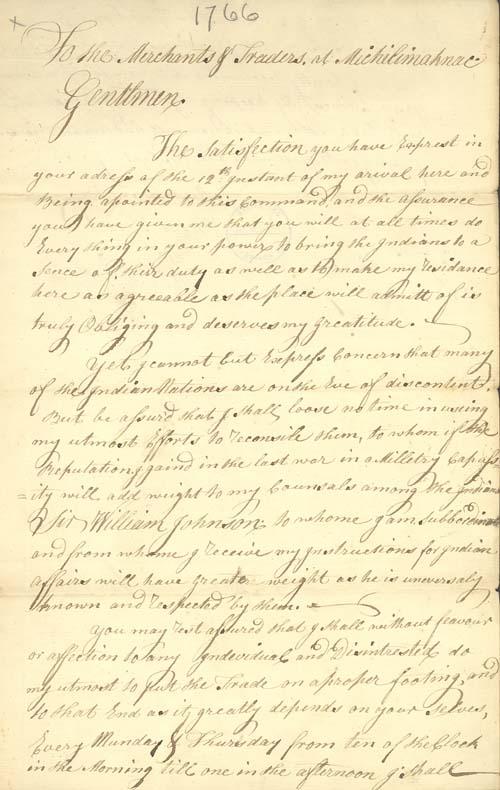 1766
To the Merchants & Traders, at Michilimaknac
Gentlmen.
The Satisfection you have Exprest in
your adress of the 12th Instant of my arival here and
Being apointed to this Command, and the assurance
you have given me that you will at all times do
Every thing in your power to bring the Indians to a
Sence of their duty as well as to make my residance
here as agreeable as the place will admitt of is
truly Obliging and deserves my Greatitude.
Yet I cannot but Express Concern that many
of the Indian Nations are on the Eve of discontent.
But be assurd that I shall loose no time in using
my utmost Efforts to reconsile them, to whom if the
Reputation, I gaind in the last war in a Milletry Capass,
=ity will add weight to my Counsals among the Indians
Sir William Johnson, to whome I am Subbordinate
and from whome I receive my Instructions for Indian
affairs will have greater weight as he is uneversaly
known and respected by them.
You may rest assured that I shall without feavour
or affection to any Indevidual and Disintrested do
my utmost to putt the Trade on a proper footing, and
to that End as it greatly depends on your selves,
Every Munday & Thursday from ten of the Clock
in the Morning till one in the afternoon I shall